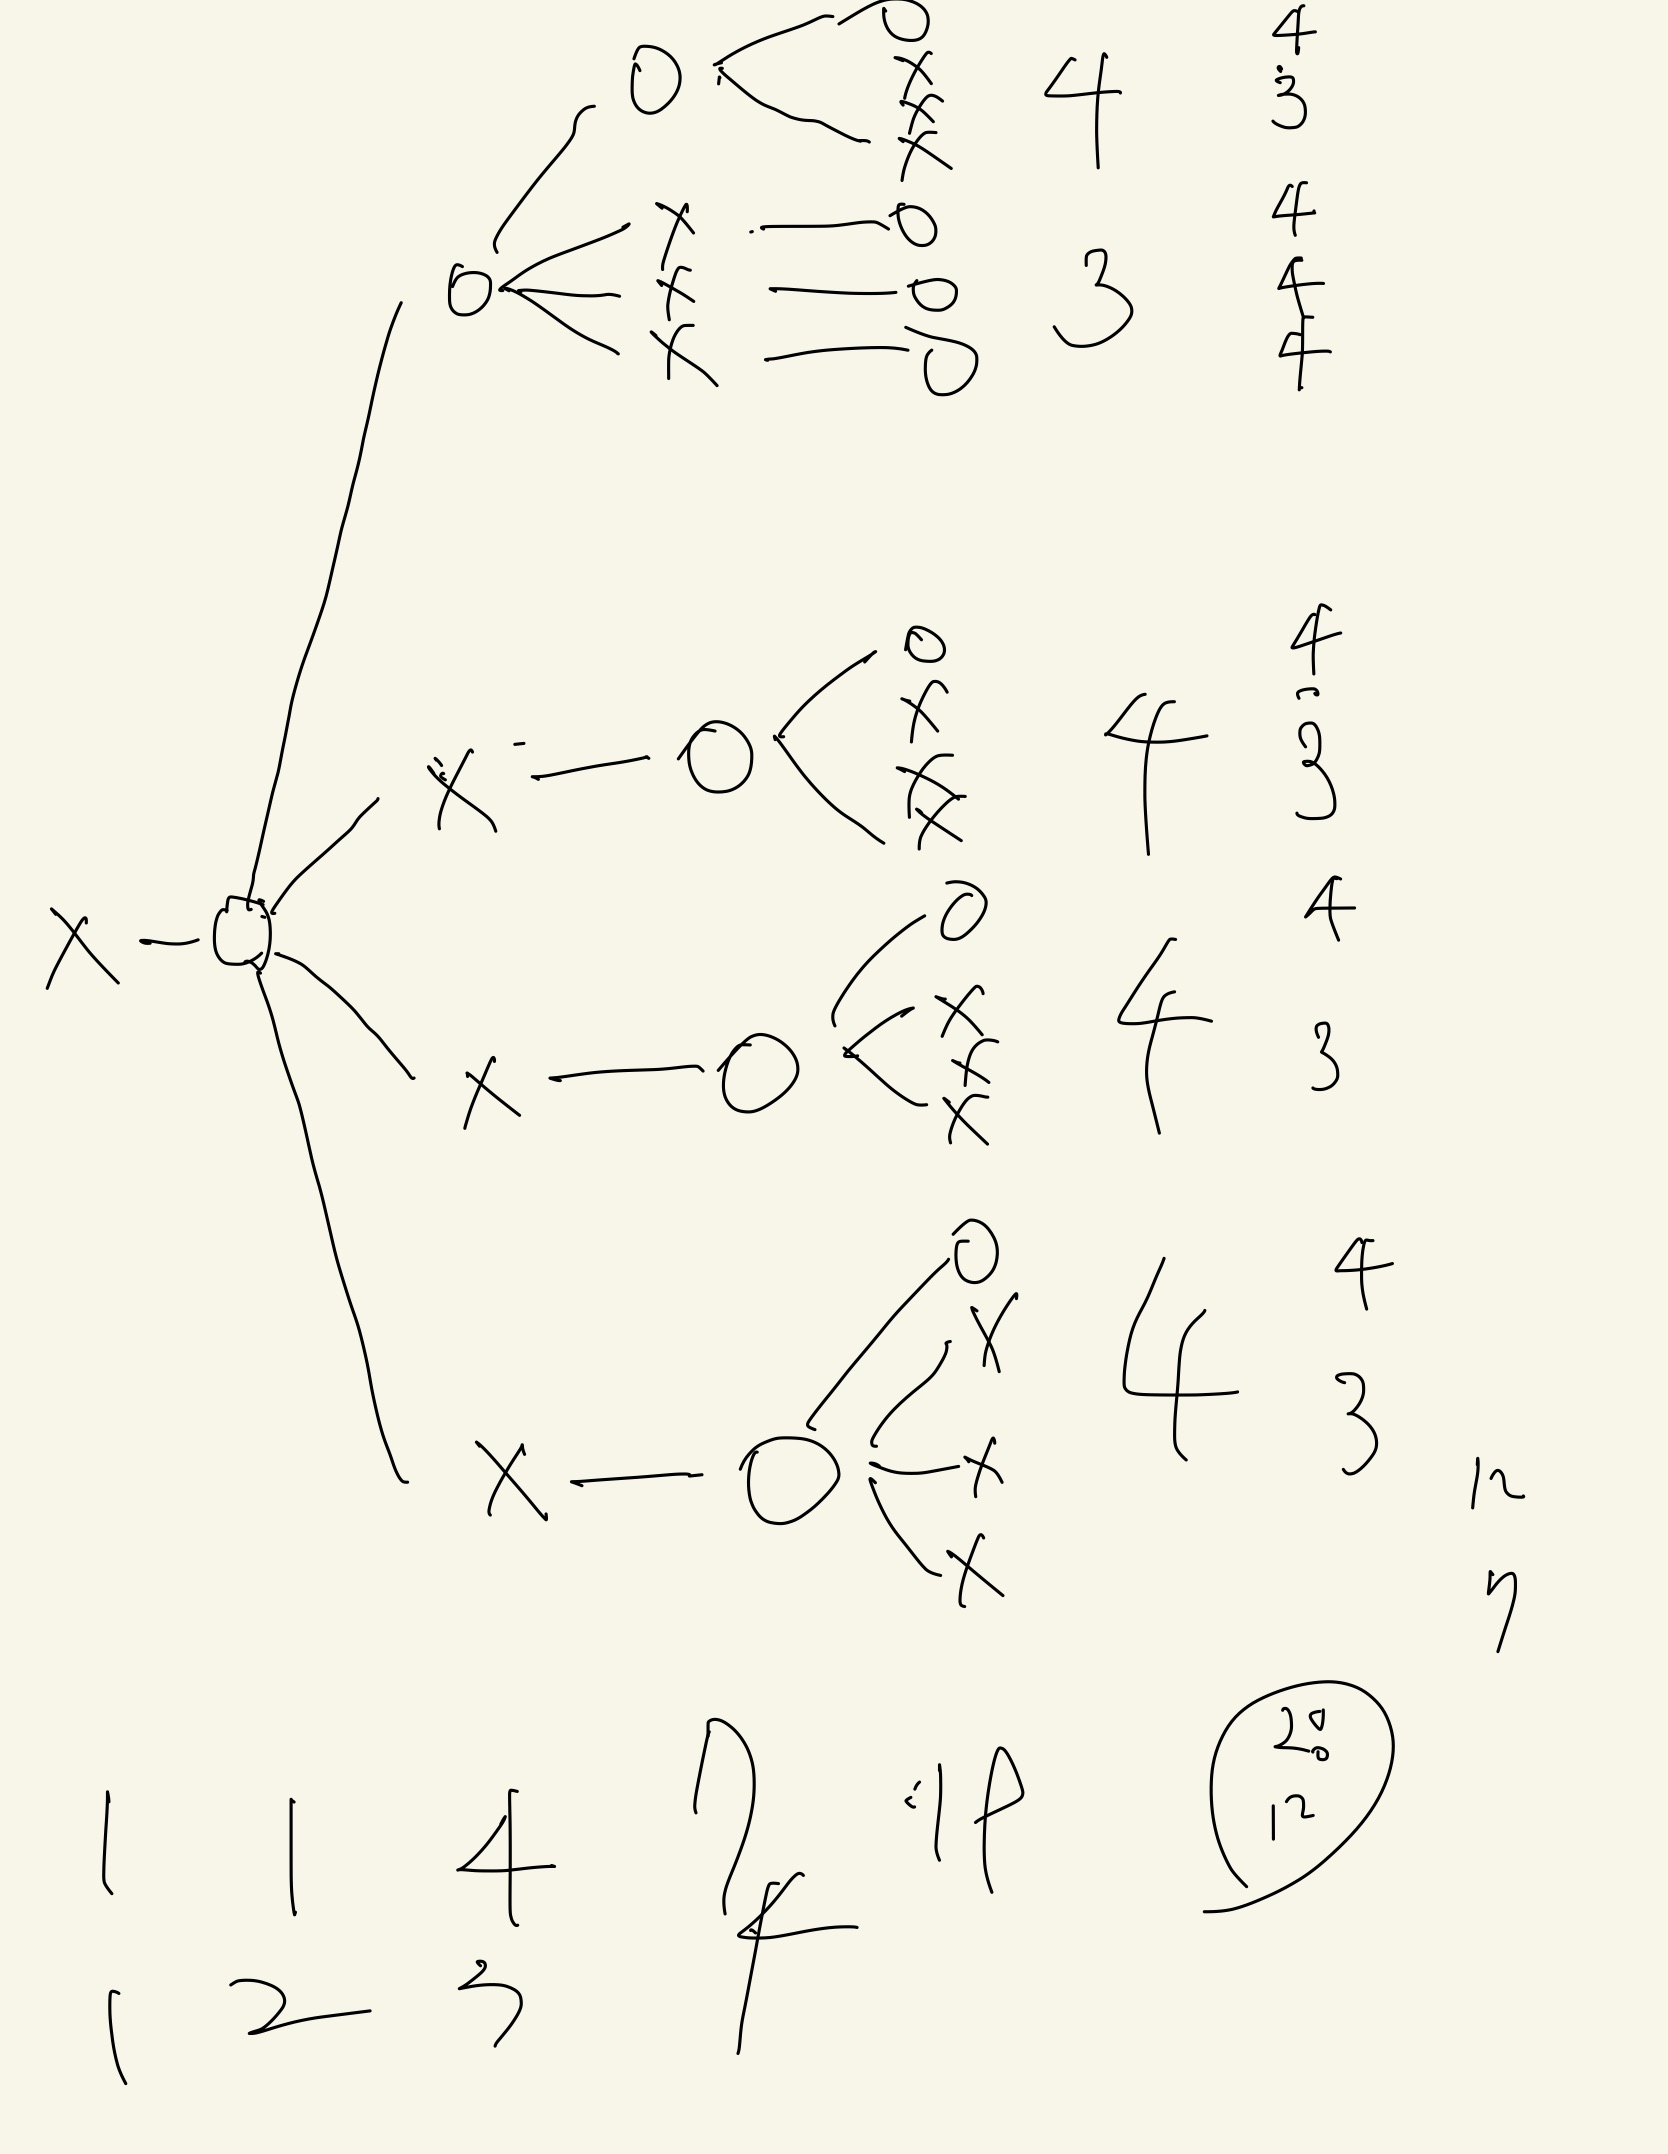 O O 4 4
X 3
X
X
O X O 4
X O 3 4
X O 4
X O O 4 4
X 3
X
X
X O X O O 4 4
X 3
X
X
X O O 4 4
X 3
X
X
12
7
1 1 4 7 19
20
12
1 2 3 4